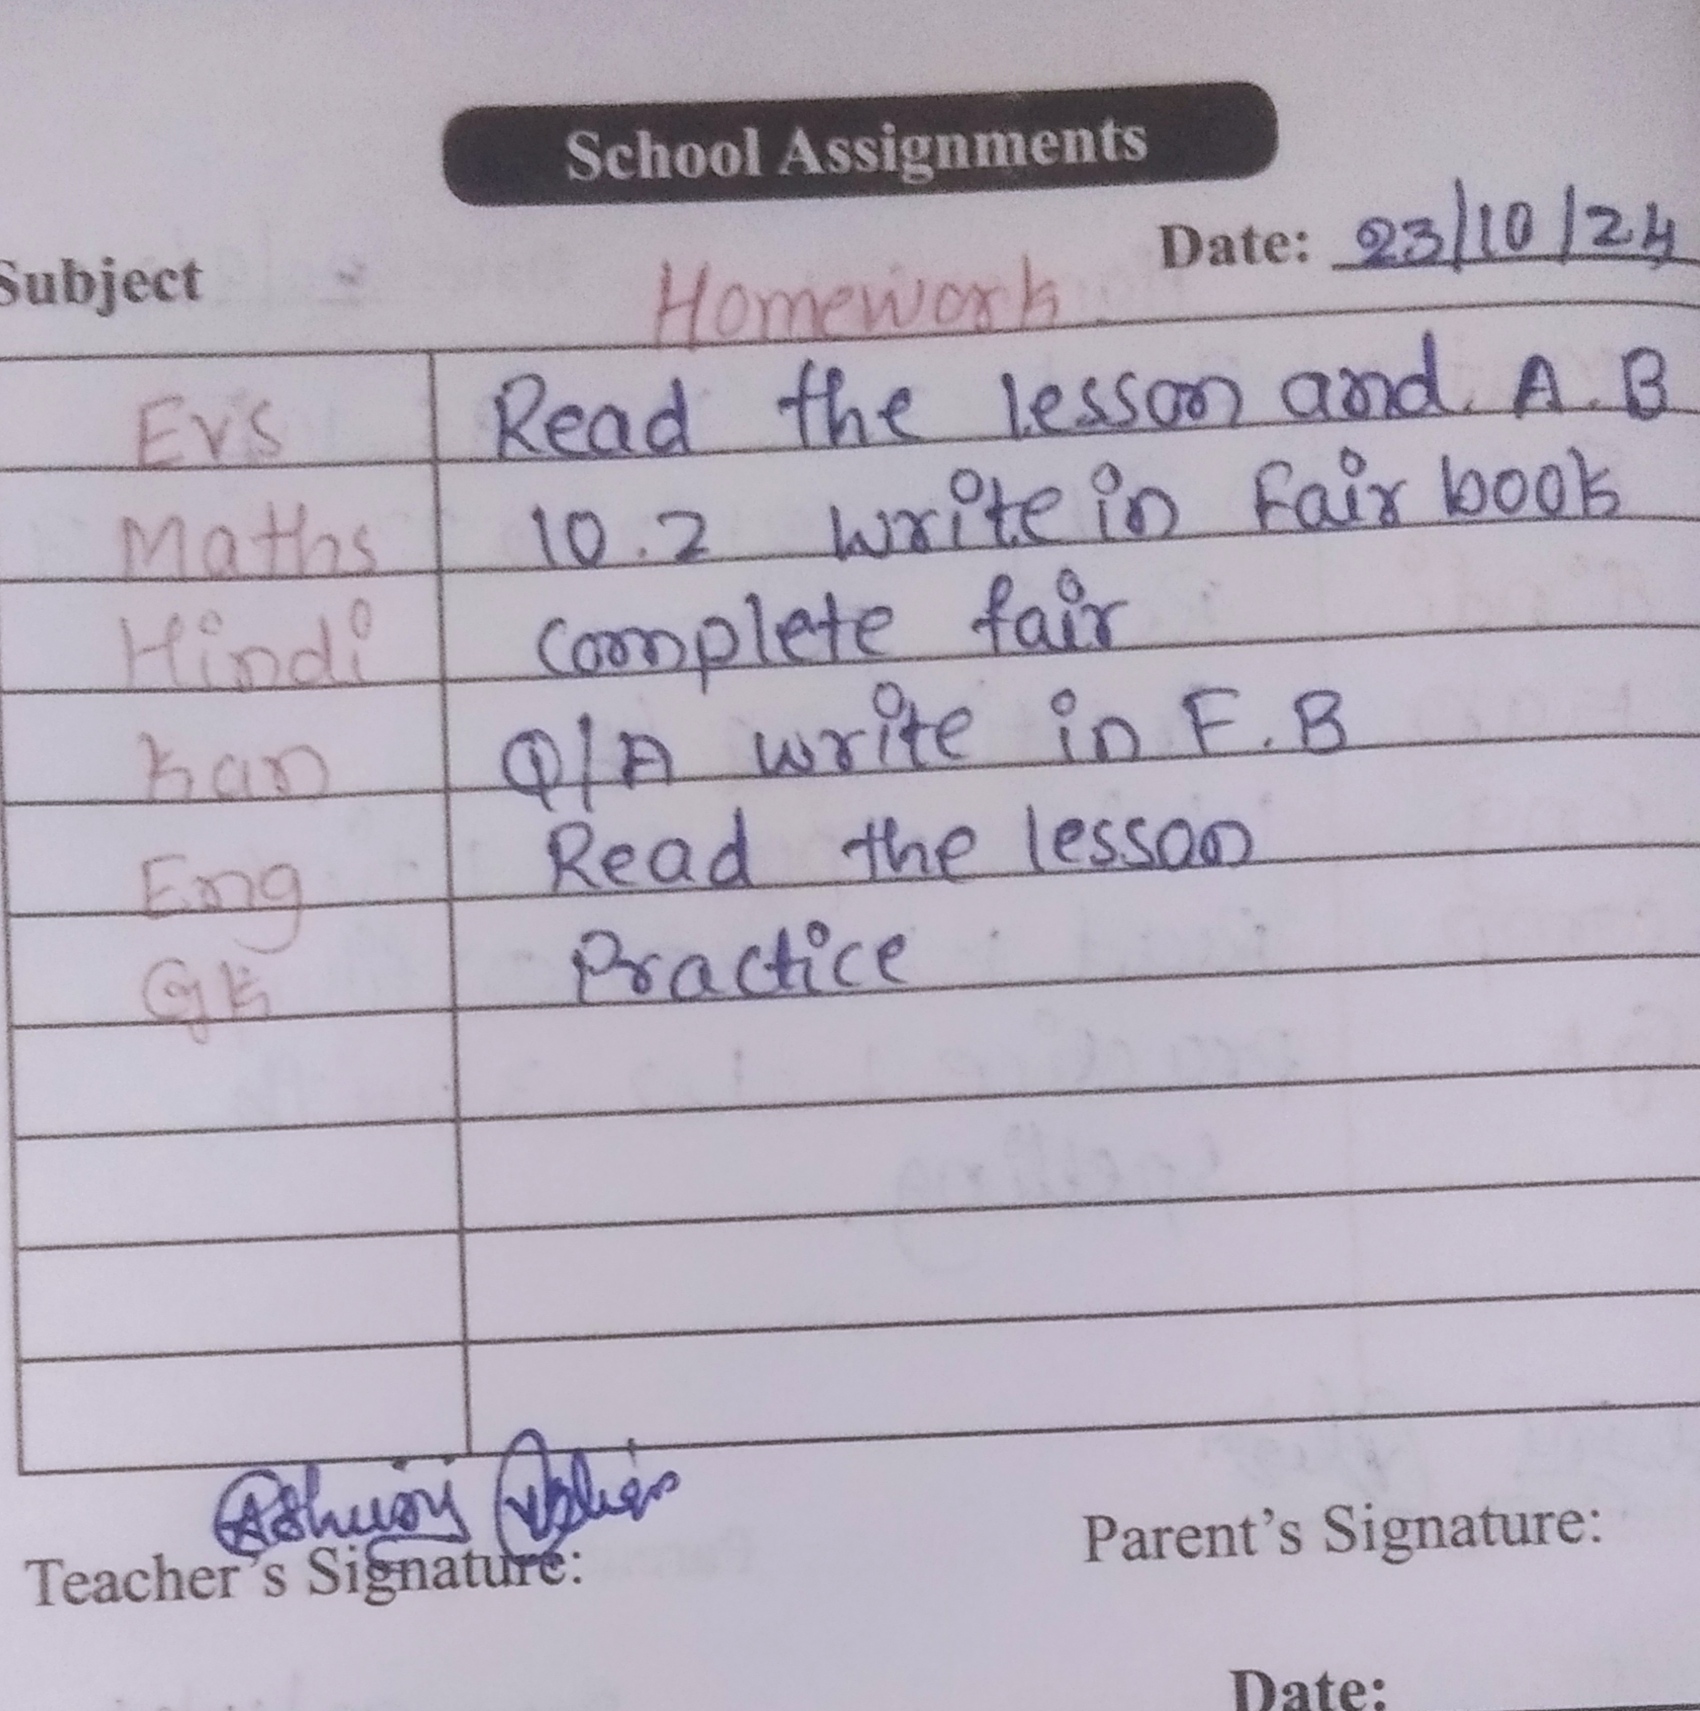 School Assignments
Date: 23/10/24
Subject Homework
Evs Read the lesson and A.B
Maths 10.2 write in Fair book
Hindi complete fair
Kan Q/A write in F.B
Eng Read the lesson
GK Practice
Teacher's Signature: Parent's Signature:
Date: